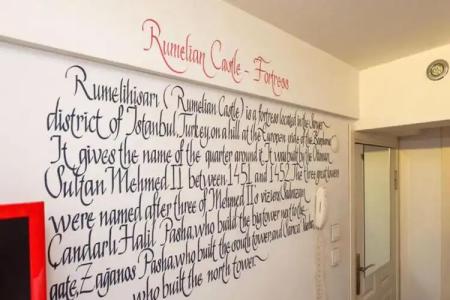 Rumelian Castle - Fortress
Rumelihisarı (Rumelian Castle) is a fortress located in the Sarıyer
district of Istanbul, Turkey, on a hill at the European side of the Bosphorus
It gives the name of the quarter around it. It was built by the Ottoman
Sultan Mehmed II between 1451 and 1452. The three great towers
were named after three of Mehmed II's viziers, Sadrazam
Çandarlı Halil Pasha, who build the big tower next to the
gate, Zağanos Pasha, who built the south tower, and Sarıca Pasha
who built the north tower.